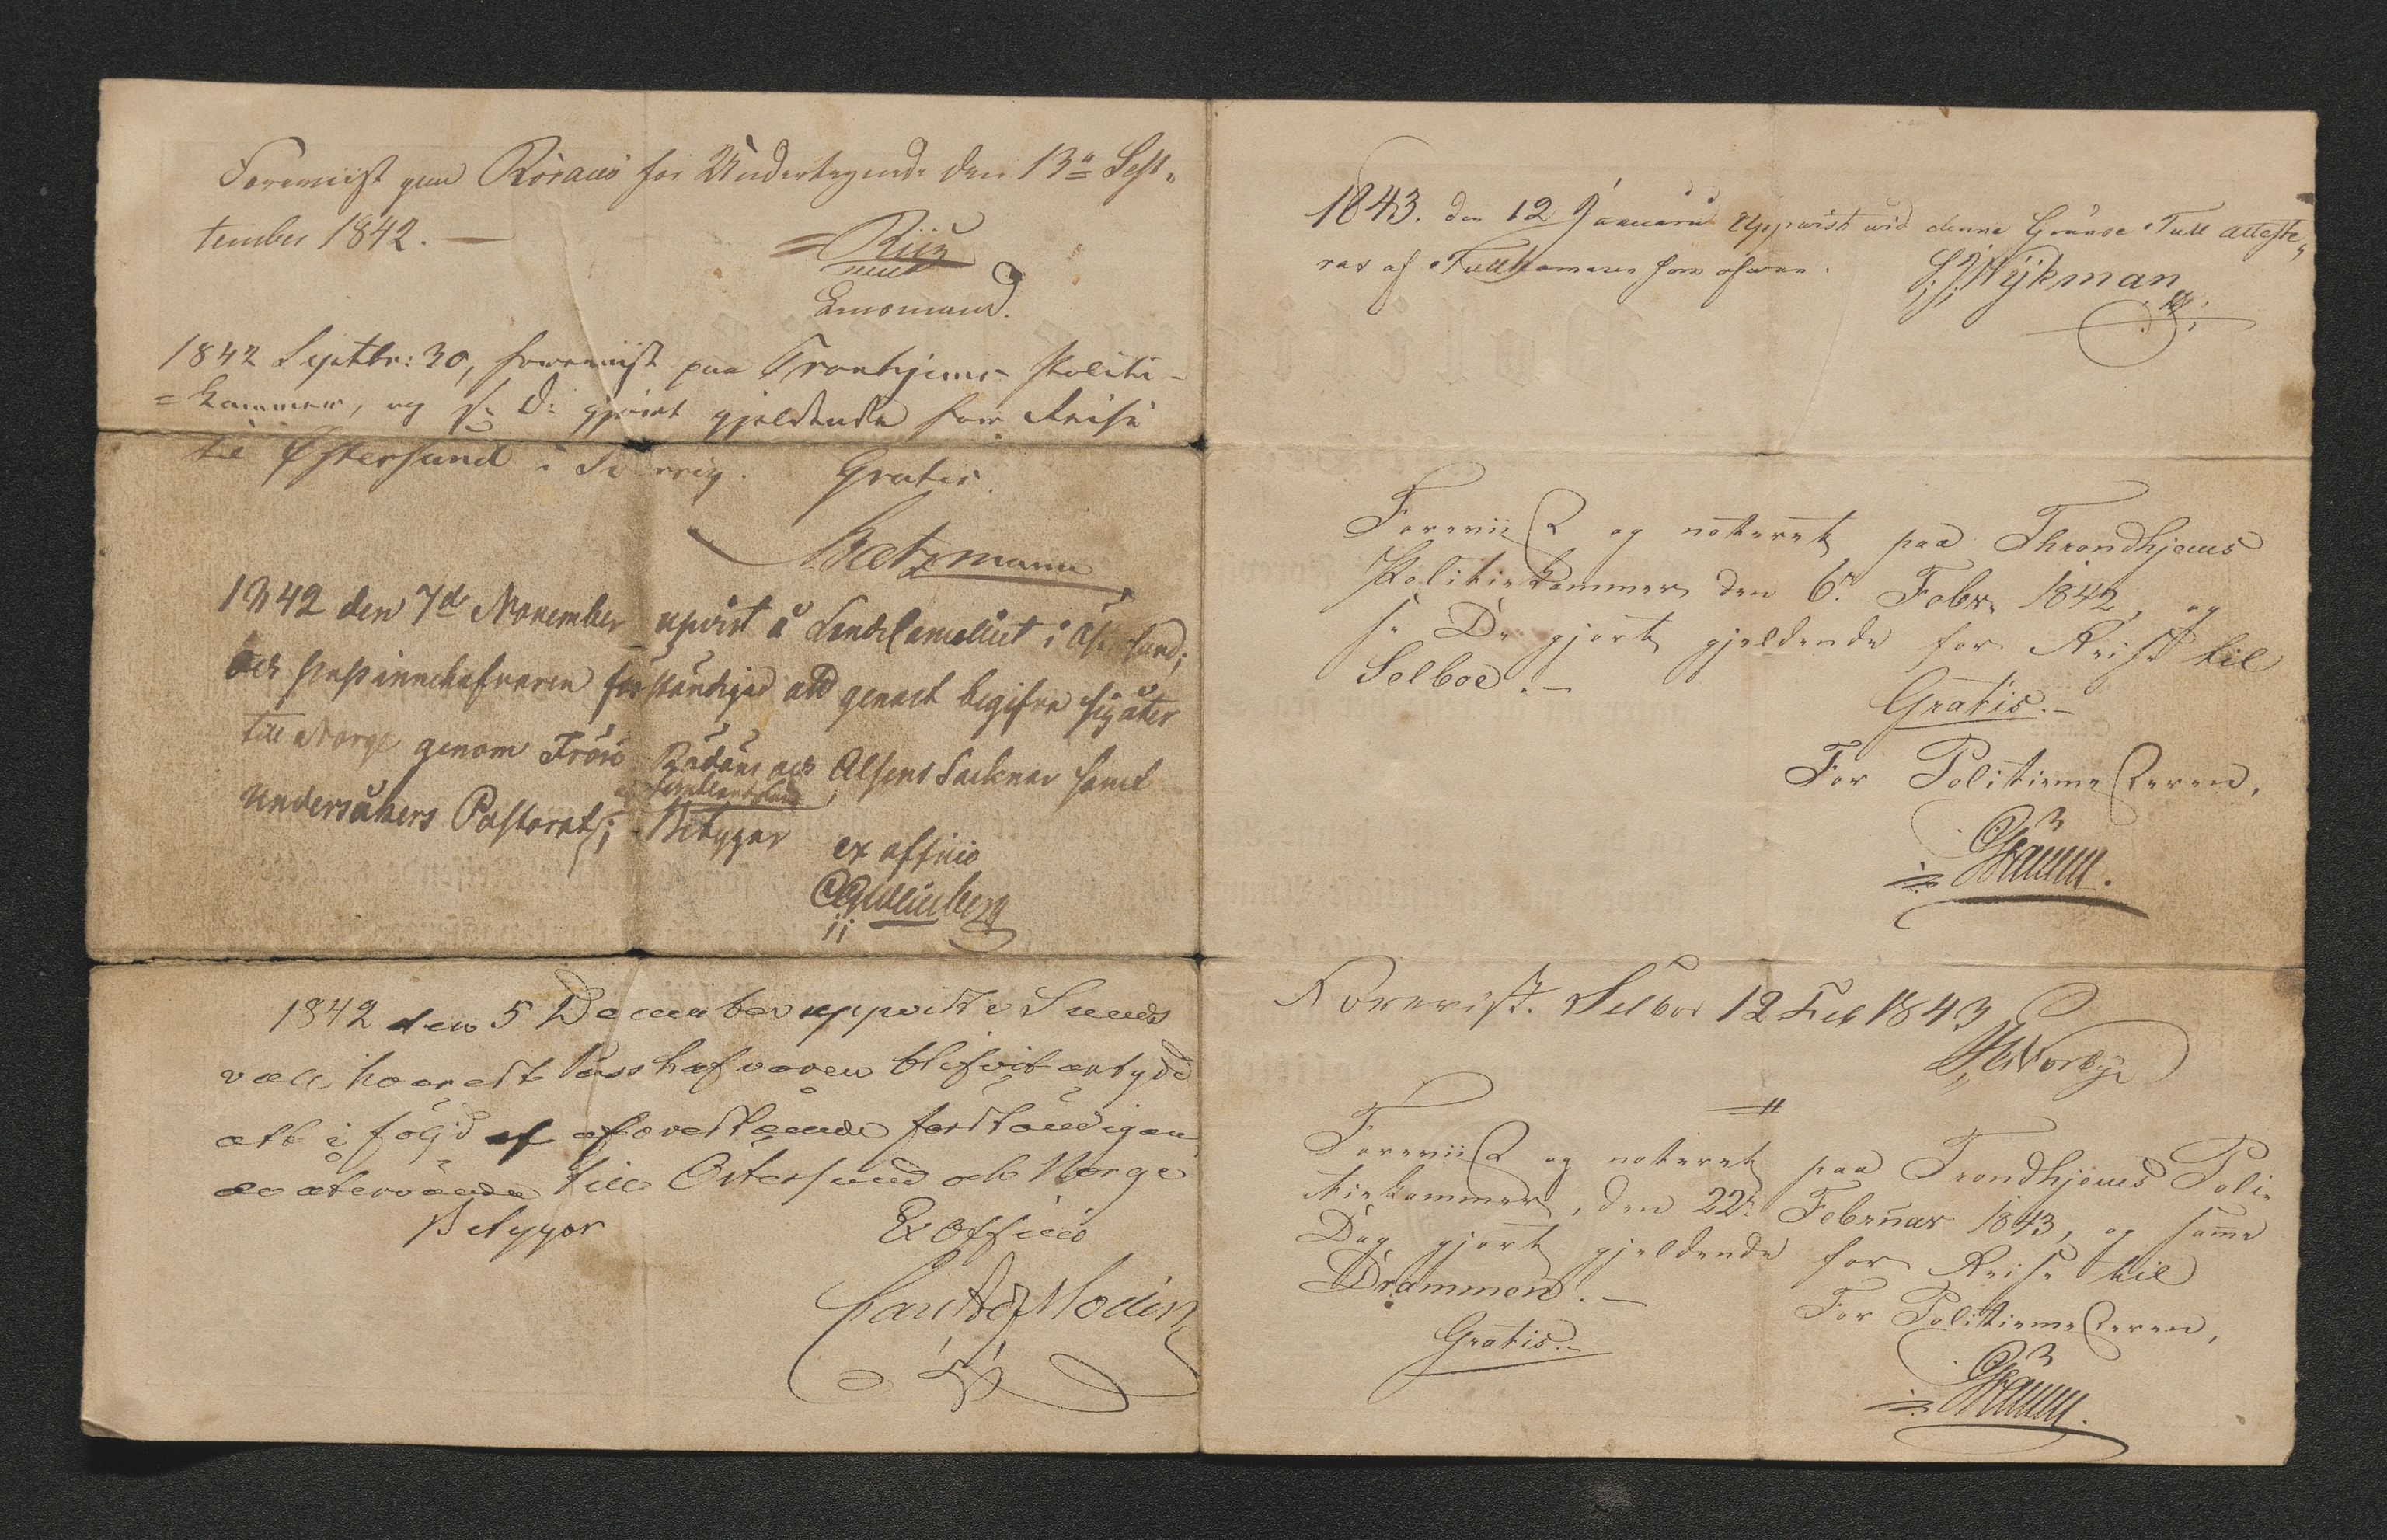 Foreviist paa Röraas for Undertegnede den 13de Sep-
tember 1842. —
Riis
Lensmand.
1842 Septbr: 30, foreviist paa Tronhjems Politi-
=kammer, og s: D: gjort gjeldende for Reise
til Østersund i Sverrig. Gratis.
1842 den 7de November upvist å Landscancelliet i Östersund;
och passinnehafvaren förständigad att genast begifva sig åter
till Norge genom Frösö Rödöns och Alsens Socknar samt
Undersåkers Pastorat; Betygar
ex officio
1842 den 5 December uppvist i Sunds
vall, hvarest Passhafvaren blifvit antydd
att i följd af ofvanstående förständigan
de återvända till Östersund och Norge
Betygar Ex officio
1843. den 12 Januarii Uppvist vid denna Gränse Tull atteste-
ras af Tullkamrare som ofvan. Wijkman
Foreviist og noteret paa Throndhjems
Politiekammer den 6te Febr. 1842, og
s. D. gjort gjeldende for Reise til
Selboe. —
Gratis. —
For Politiemesteren,
Forevist. Selboe 12 Feb 1843
Foreviist og noteret paa Trondhjems Poli-
tiekammer, den 22de Februar 1843, og samme
Dag gjort gjeldende for Reise til
Drammen. —
For Politiemesteren,
Gratis. —